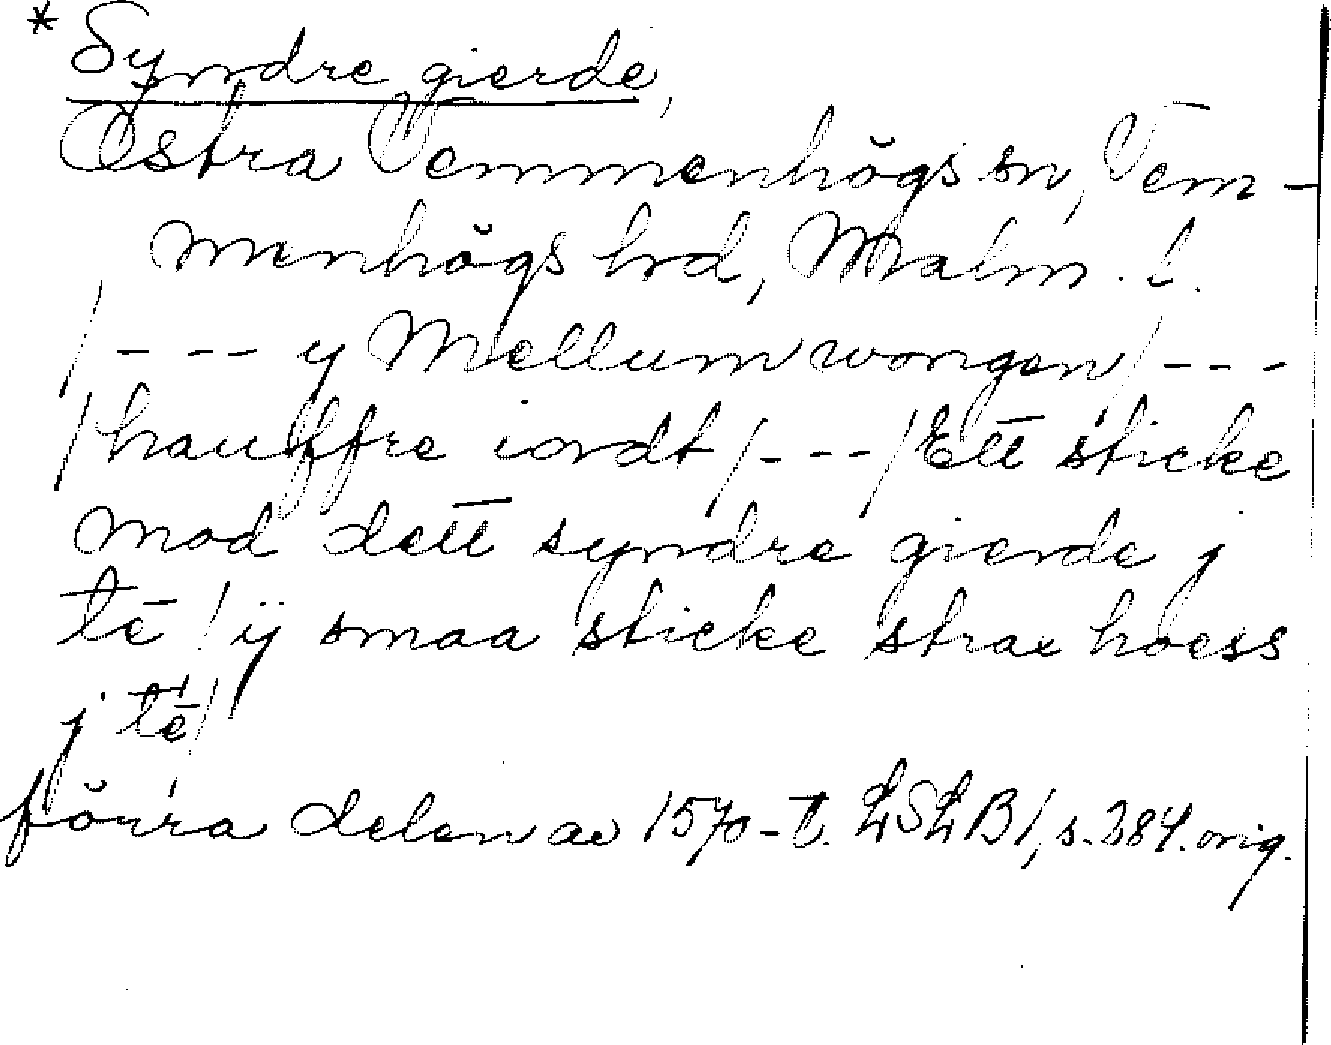 * Syndre gierde,
Östra Vemmenhögs sn, Vem-
menhögs hrd, Malm. l.
/--- y Mellumwongen/---
/hauffre iordt/---/Ett sticke
mod dett syndre gierde j
tē/ij smaa sticke strax hoess
j tē/
förra delen av 1570-t. LSLB1, s. 284. orig.